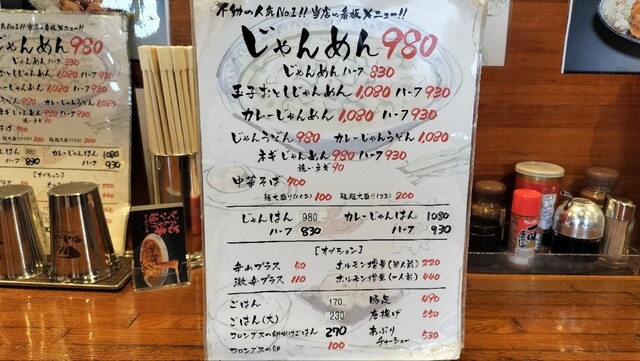 不動の人気No.1!! 当店の看板メニュー!!
じゃんめん 980
じゃんめん ハーフ 830
玉子おとしじゃんめん 1,080 ハーフ 930
カレーじゃんめん 1,080 ハーフ 930
じゃんうどん 980 カレーじゃんうどん 1,080
ネギじゃんめん 980 ハーフ 930
追いネギ 90
中華そば 700
麺大盛り 100 麺超大盛り 200
じゃんはん 980 カレーじゃんはん 1080
ハーフ 830 ハーフ 930
[オプション]
辛みプラス 50 ホルモン増量(半人前) 220
激辛プラス 110 ホルモン増量(一人前) 440
ごはん 170 豚足 490
ごはん(大) 230 唐揚げ 550
コロンブスの卵かけごはん 270 あぶりチャーシュー 530
コロンブスの卵 100